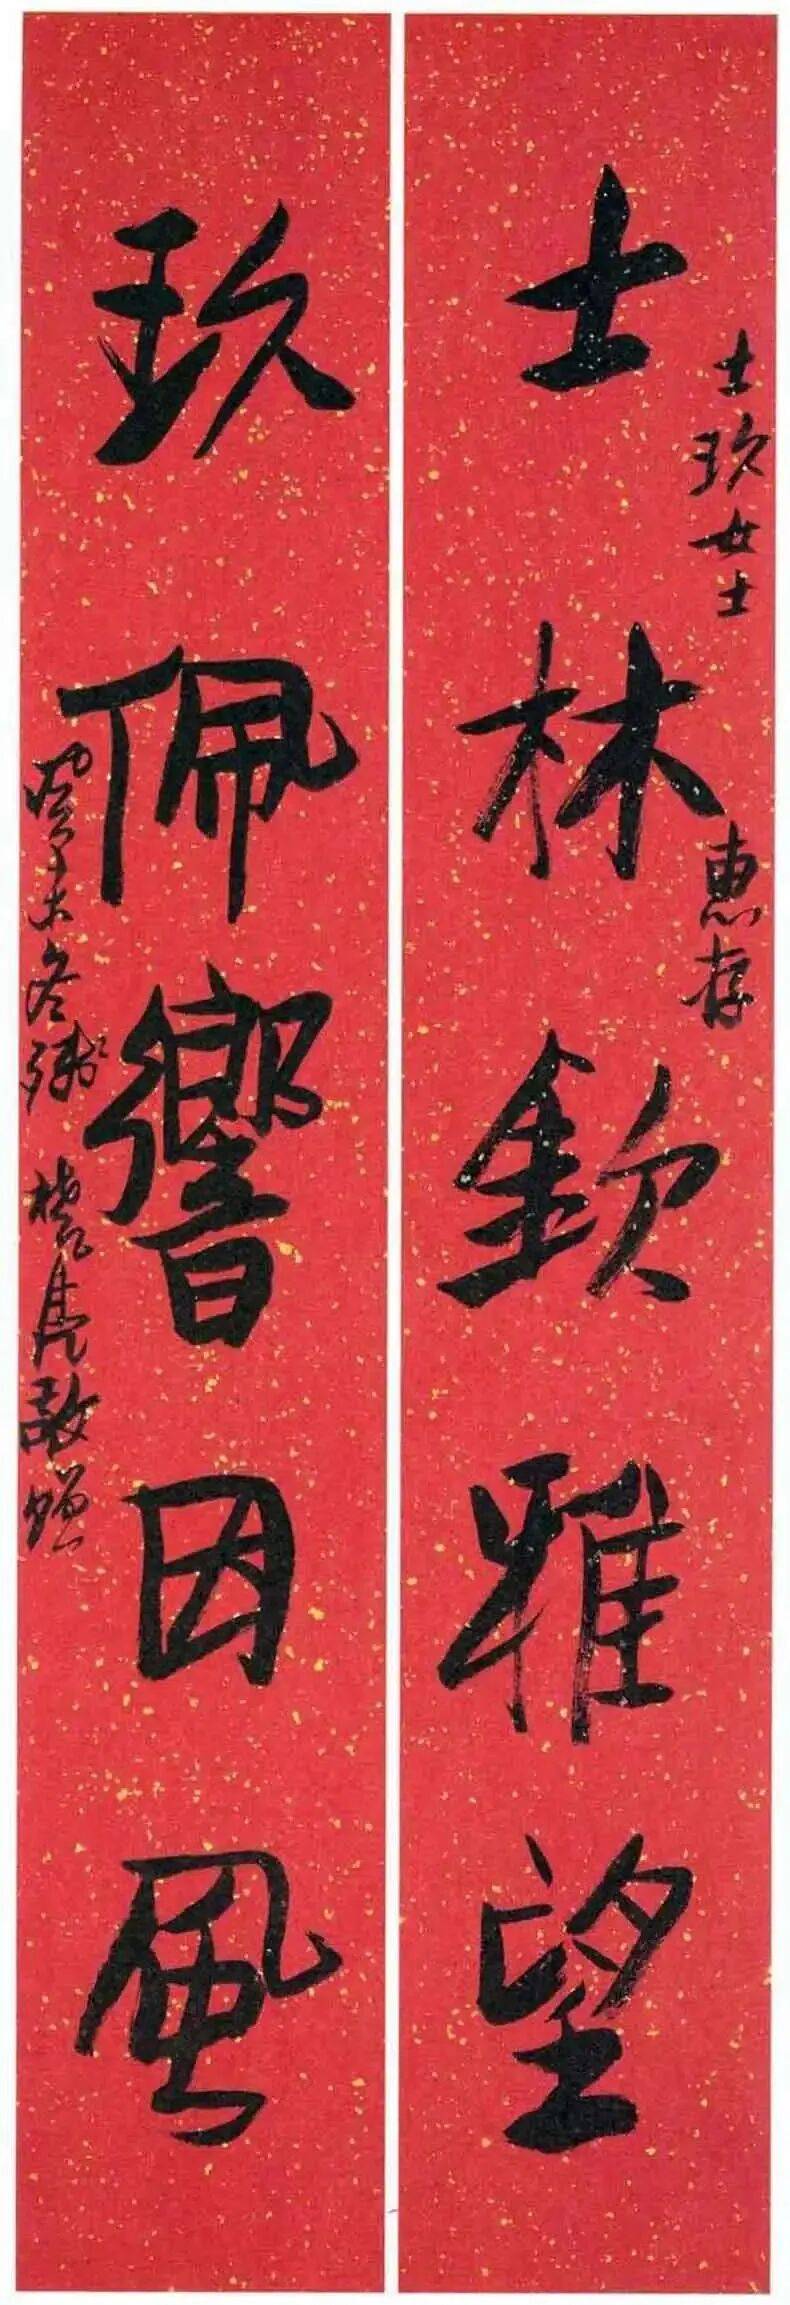 士玖女士 惠存
士林欽雅望
玖佩響因風
癸未冬 敬贈